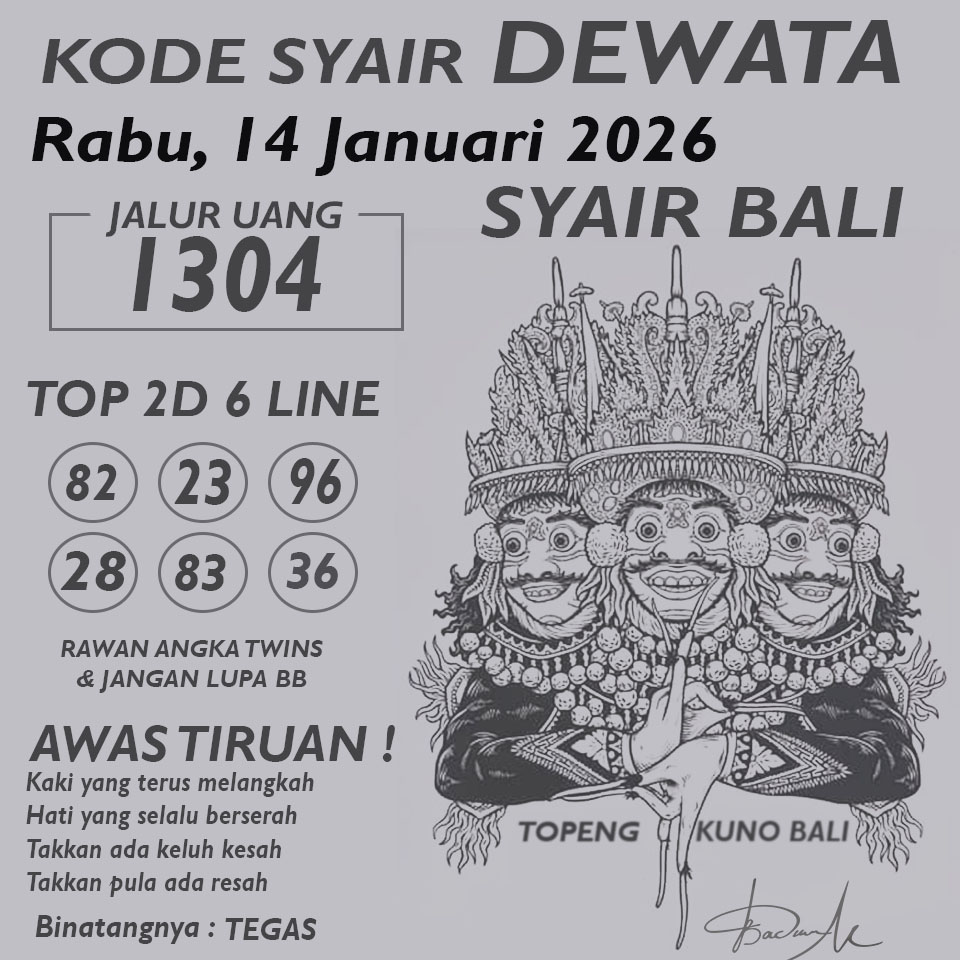 KODE SYAIR DEWATA
Rabu, 14 Januari 2026
SYAIR BALI
JALUR UANG
1304
TOP 2D 6 LINE
82 23 96
28 83 36
RAWAN ANGKA TWINS
& JANGAN LUPA BB
AWAS TIRUAN !
Kaki yang terus melangkah
Hati yang selalu berserah
Takkan ada keluh kesah
Takkan pula ada resah
Binatangnya : TEGAS
TOPENG KUNO BALI